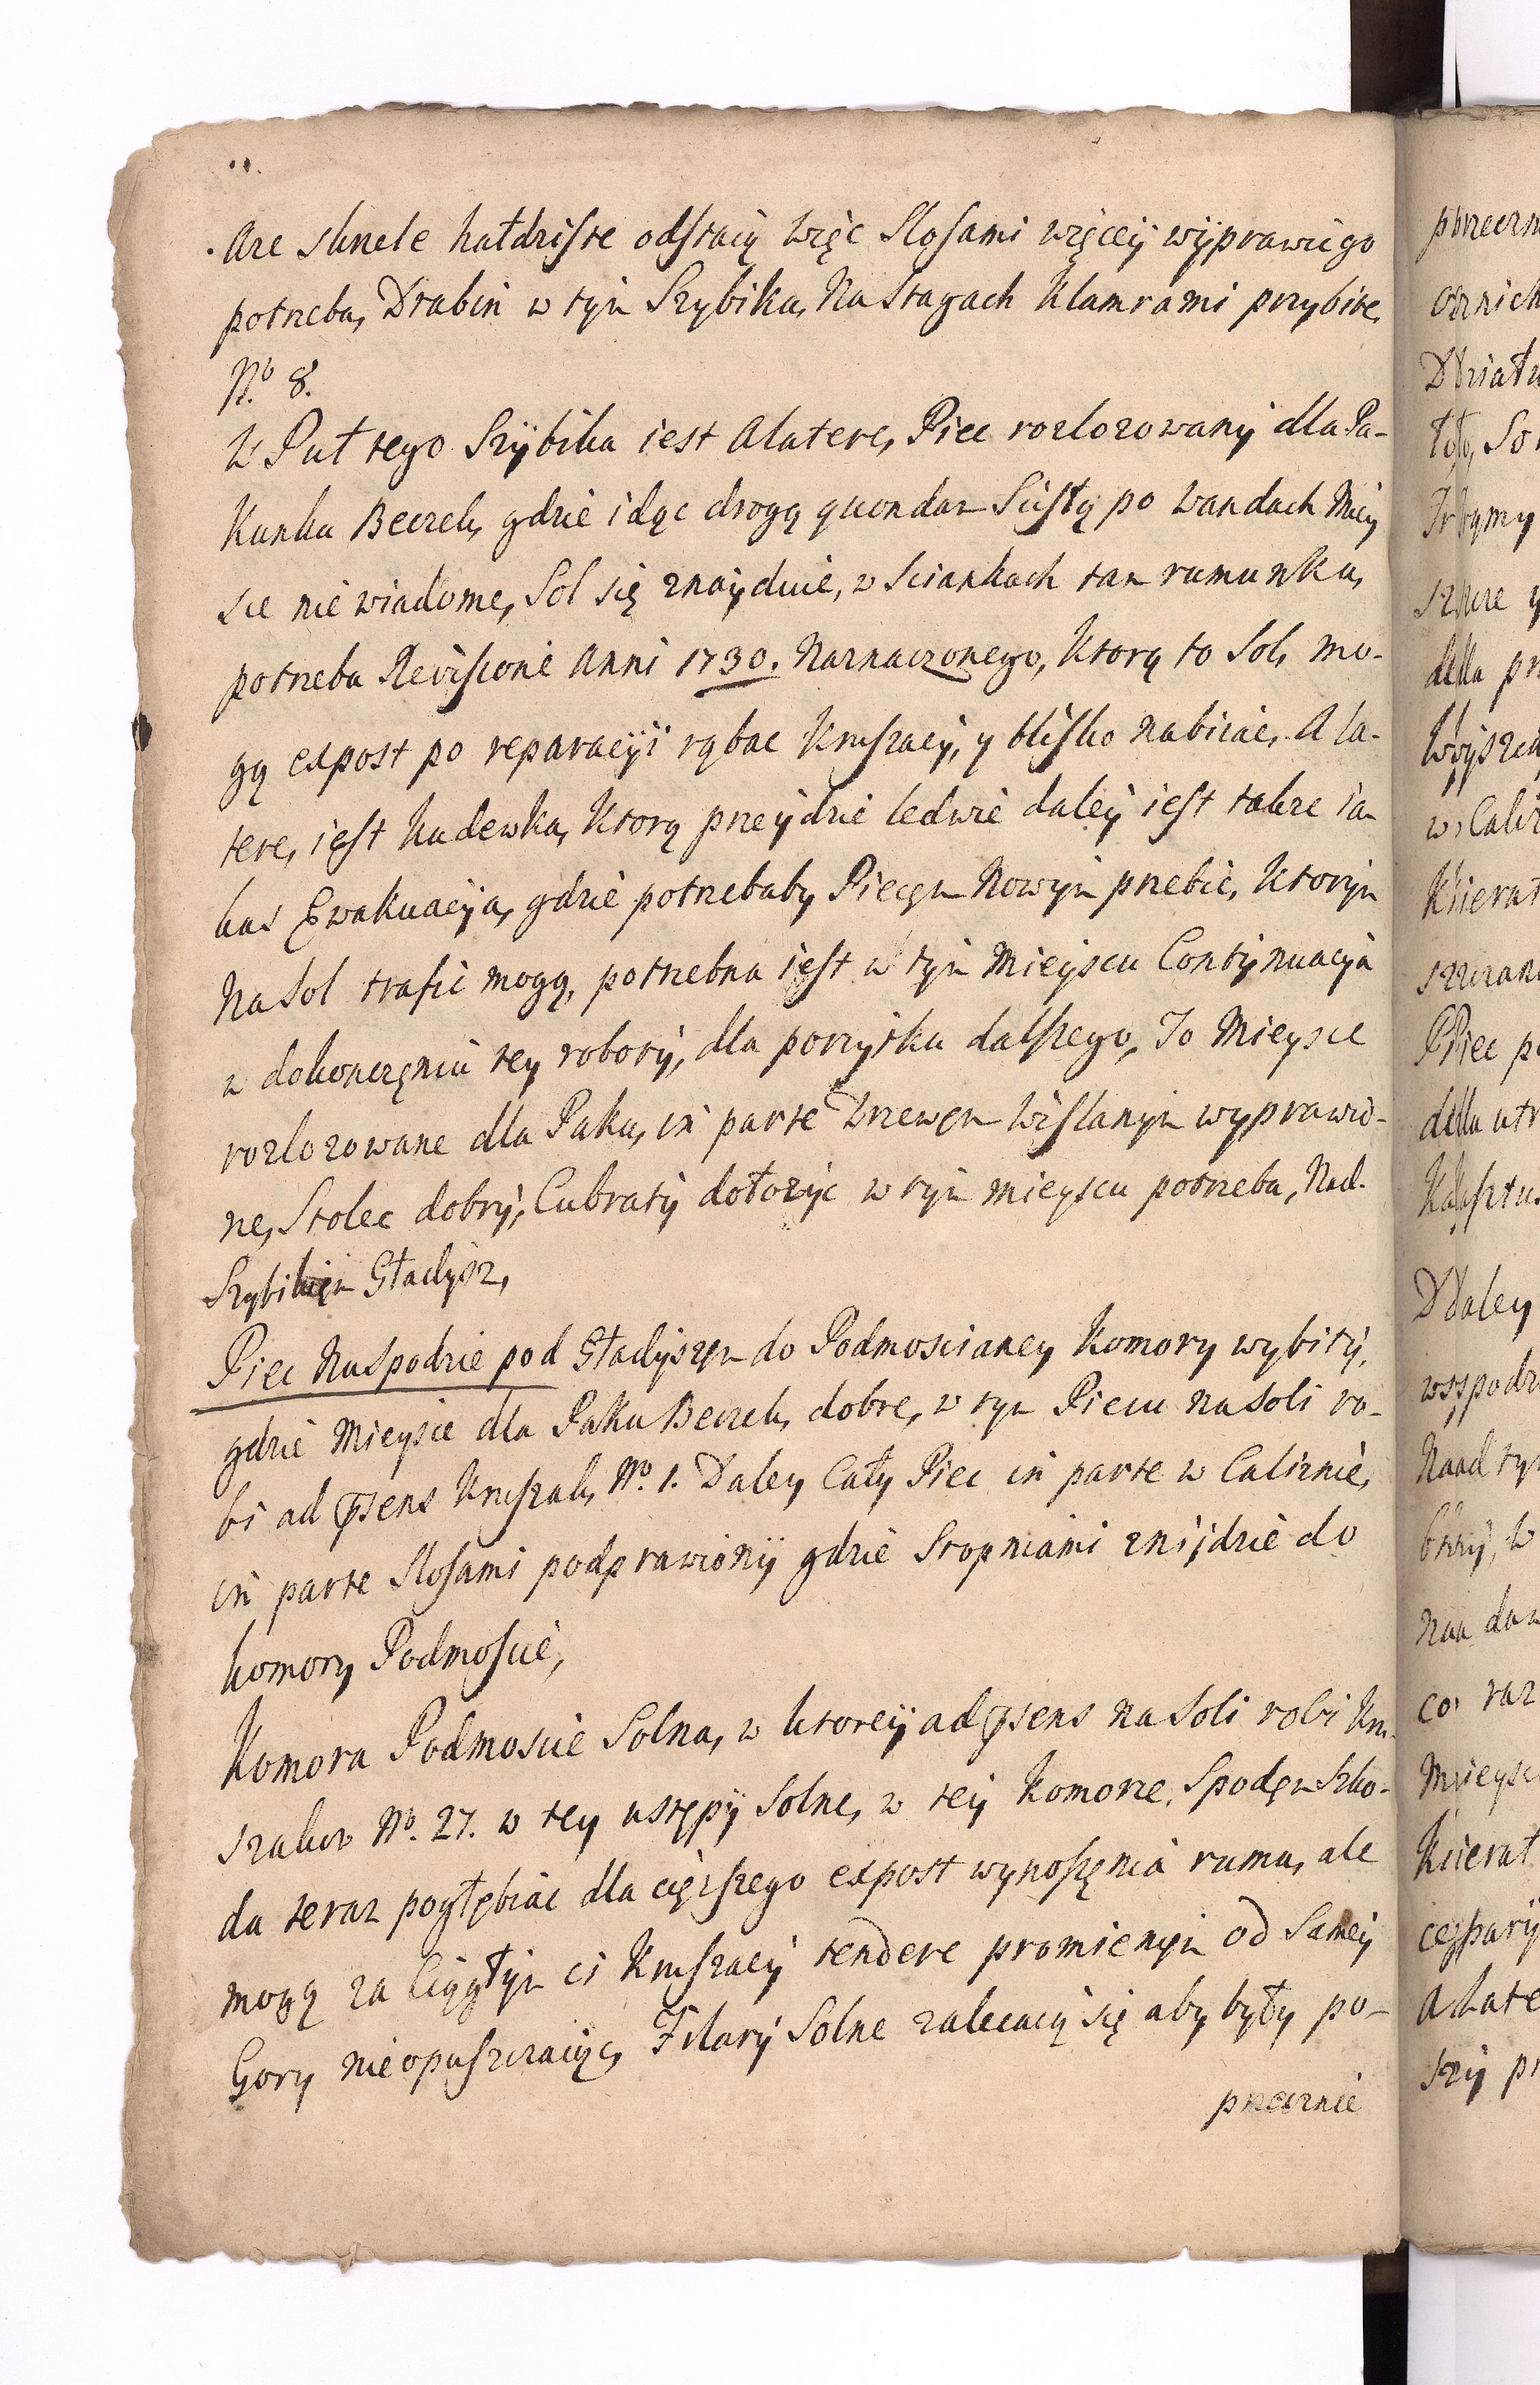 Are sknele hałdziste odstaią więc Slosami więcey wyprawić go
potrzeba, Drabin w tym Szybiku, Na Stagach Klamrami przybite,
No. 8.
W Puł tego Szybika iest Alatere, Piec rozlozowany dla Pa-
kunku Beczek, gdzie idąc drogą quondam Sistą po Wandach Miey
sce nie wiadome, Sol się znayduie, w Sciankach tam rumunku,
potrzeba Revisione Anni 1730. Naznaczonego, Ktorą to Sol, mo-
gą expost po reparacyi rąbac Kruszacy, y blisko nabiiac. Ala-
tere, iest Kadewka, Ktorą przeydzie ledwie daley iest takze ia-
kas Ewakuacya, gdzie potrzebaby Piecęm Nowym przebic, Ktorym
Na Sol trafic mogą, potrzebna iest w tym Mieyscu Contynuacya
z dokonczęniu tey roboty, dla pozytku dalszego, To Mieysce
rozlozowane dla Paku, in parte Drzewęm Wislanym wyprawio-
ne, Stolec dobry, Cubraty dołozyc w tym mieyscu potrzeba, Nad-
Szybikięm Gładysz,
Piec Naspodzie pod Gładyszęm do Podmoscianey Komory wybity,
gdzie Mieysce dla Paku Beczek, dobre, w tym Piecu na Soli ro-
bi ad psens Kruszak, No. 1. Daley Cały Piec in parte w Caliznie,
in parte Slosami podprawiony gdzie Stopniami zniydzie do
komory Podmoscie,
Komora Podmoscie Solna, w ktorey ad psens na Soli robi Kru-
szakow No. 27. w tey ustępy Solne, w tey Komorze, Spodęm Szko-
da teraz pogłębiac dla cięzszego expost wynoszęnia rumu, ale
mogą za Ciągłym ci Kruszacy tendere promienym od Samey
Gory nie opuszczaiąc, Filary Solne zalecaią się aby były po-
przecznie